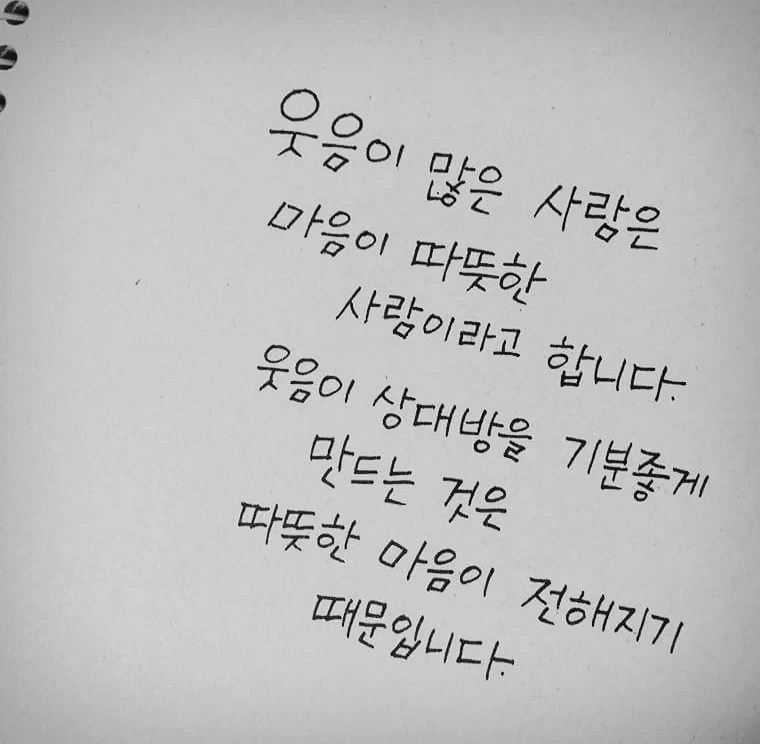 웃음이 많은 사람은
마음이 따뜻한
사람이라고 합니다.
웃음이 상대방을 기분좋게
만드는 것은
따뜻한 마음이 전해지기
때문입니다.